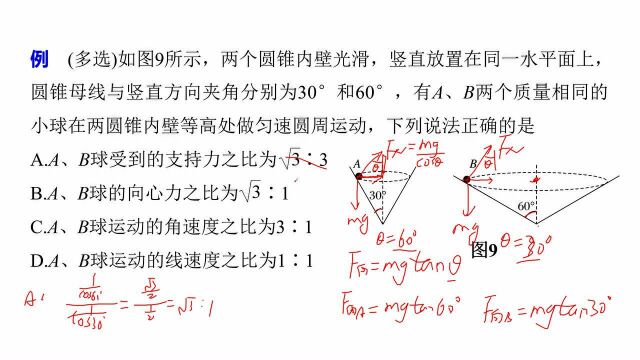 例 (多选)如图9所示，两个圆锥内壁光滑，竖直放置在同一水平面上，
圆锥母线与竖直方向夹角分别为30°和60°，有A、B两个质量相同的
小球在两圆锥内壁等高处做匀速圆周运动，下列说法正确的是
A.A、B球受到的支持力之比为√3∶3
B.A、B球的向心力之比为√3∶1
C.A、B球运动的角速度之比为3∶1
D.A、B球运动的线速度之比为1∶1
A θ F_N = mg/cosθ
30°
mg
θ=60°
B θ F_N
60°
mg
θ=30°
图9
F向=mgtanθ
F向A=mgtan60°
F向B=mgtan30°
A: (1/cos60°)/(1/cos30°) = (√3/2)/(1/2) = √3:1